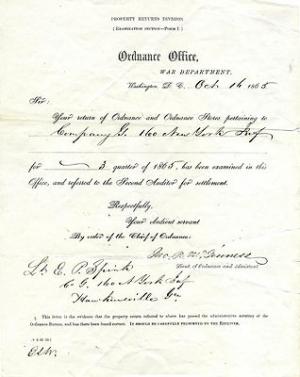 PROPERTY RETURNS DIVISION
(EXAMINATION SECTION—FORM I.)
Ordnance Office,
WAR DEPARTMENT,
Washington, D. C., Oct. 16 1865
Sir:
Your return of Ordnance and Ordnance Stores pertaining to
Company G. 160 New York Inf
for 3 quarter of 1865, has been examined in this
Office, and referred to the Second Auditor for settlement.
Respectfully,
Your obedient servant
By order of the Chief of Ordnance:
Lieut. of Ordnance and Assistant
Lt E. P. Spink
Co G. 160 N York Inf
Hawkinsville Ga
This letter is the evidence that the property return referred to above has passed the administrative scrutiny of the
Ordnance Bureau, and has there been found correct. IT SHOULD BE CAREFULLY PRESERVED BY THE RECEIVER.